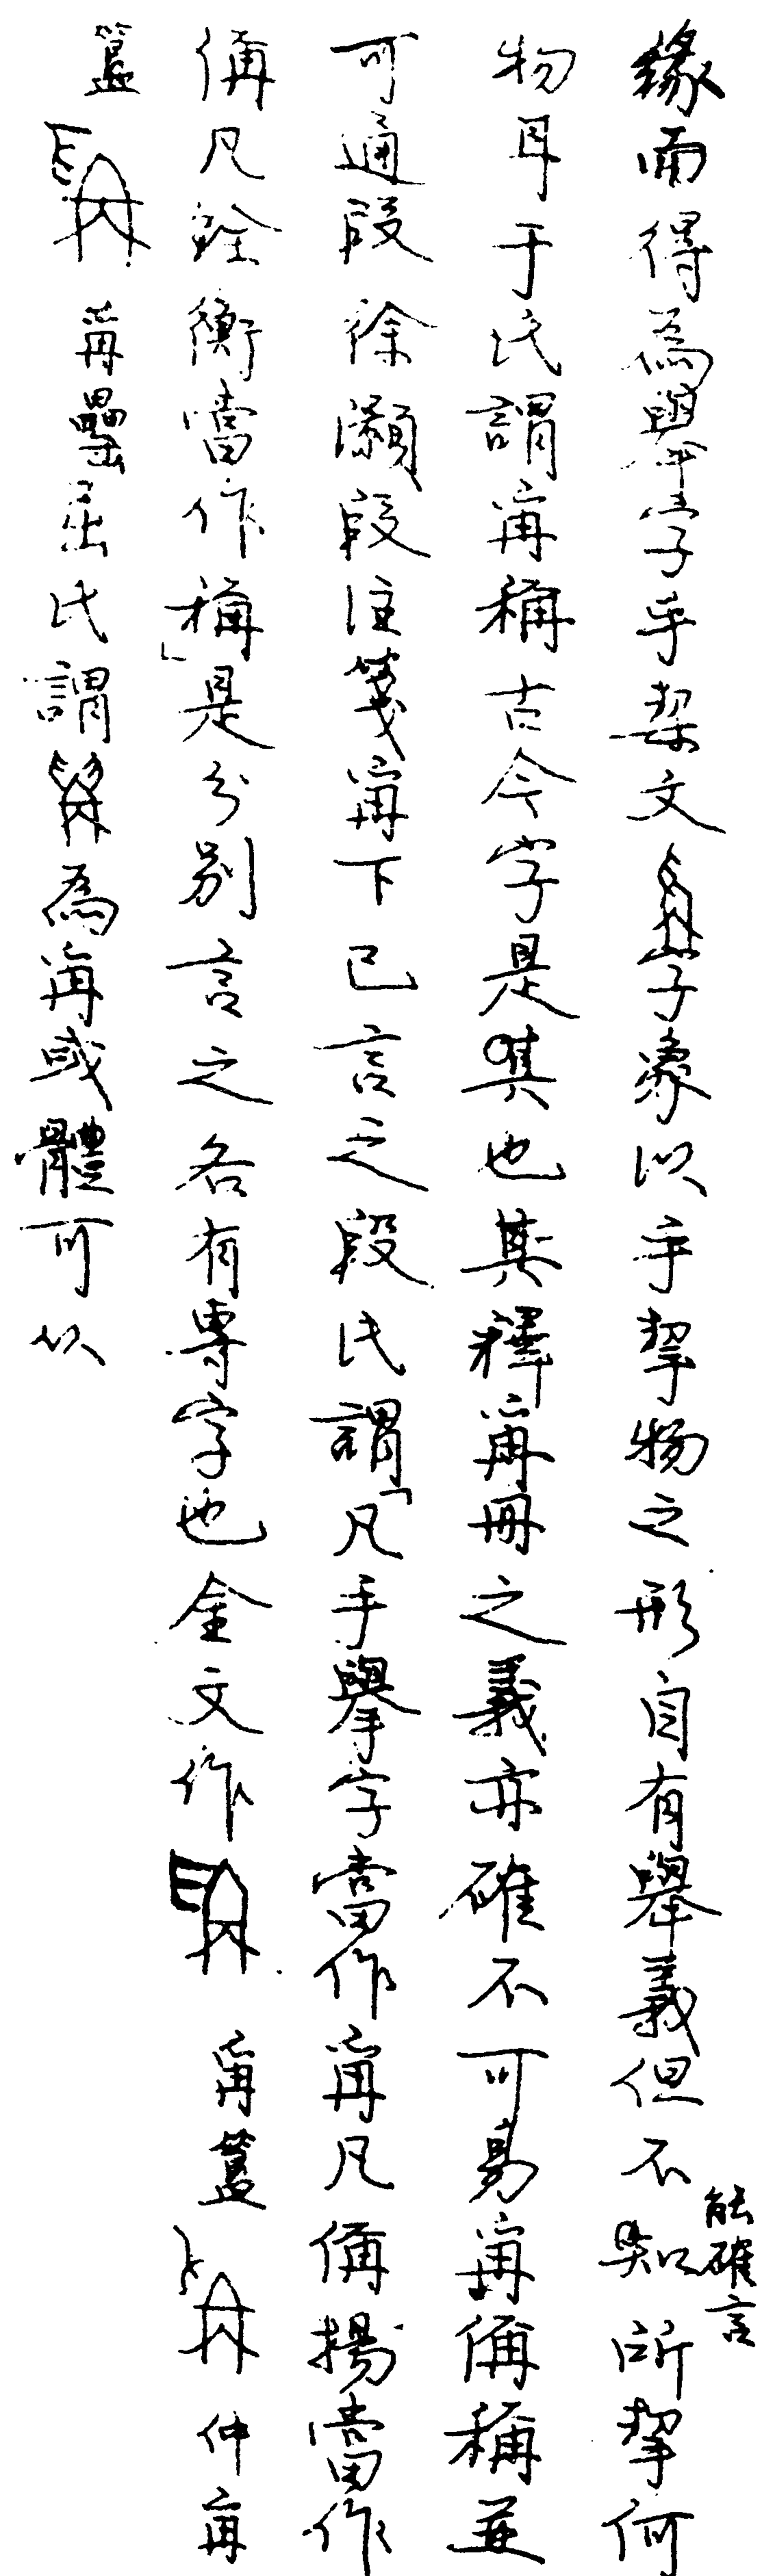 緣而得為舉字乎栔文子象以手挈物之形自有舉義但不能確言知所挈何
物耳于氏謂爯稱古今字是也其釋爯冊之義亦確不可易爯偁稱並
可通段徐灝段注箋爯下已言之段氏謂「凡手舉字當作爯凡偁揚當作
偁凡銓衡當作稱」是分別言之各有專字也金文作爯簋仲爯
簋爯罍屈氏謂為爯或體可从